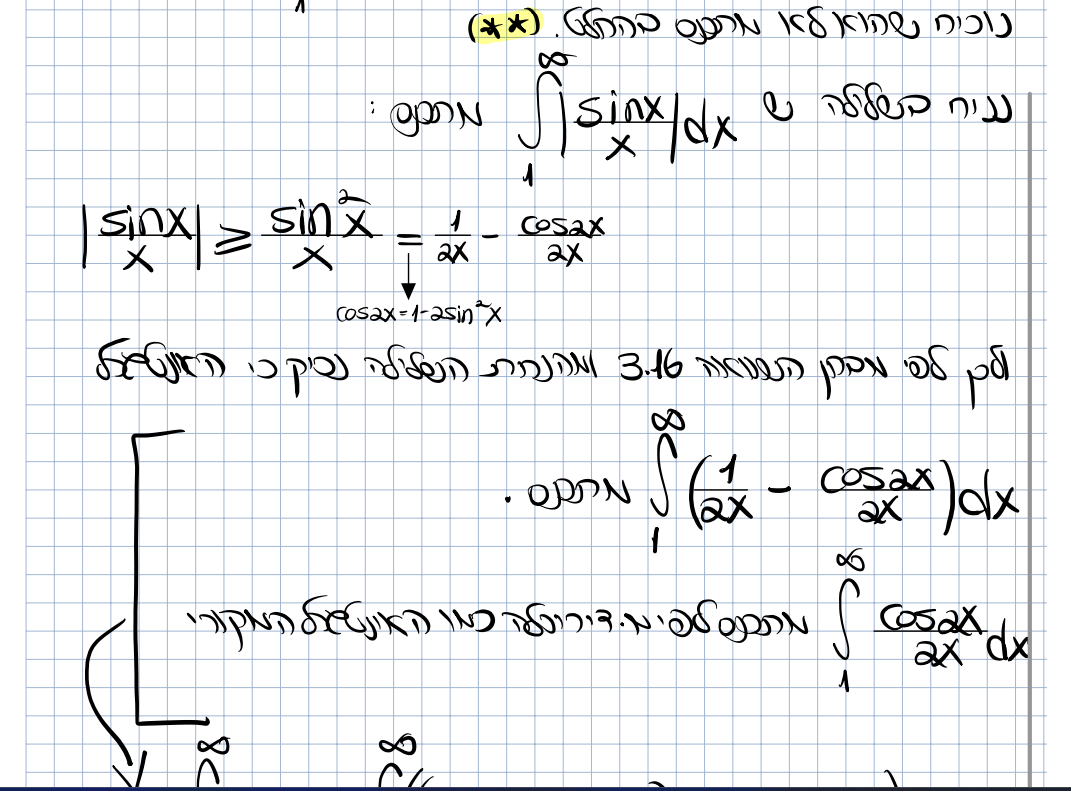 נוכיח שהוא לא מתכנס בהחלט. (**)
נניח בשלילה ש ∫₁^∞ |sinx/x| dx מתכנס:
|sinx/x| ≥ sin²x/x = 1/2x - cos2x/2x
cos2x=1-2sin²x
ולכן לפי מבחן השוואה 3.16 ומהנחת השלילה נסיק כי האינטגרל
∫₁^∞ (1/2x - cos2x/2x) dx מתכנס.
∫₁^∞ cos2x/2x dx מתכנס לפי מ. דיריכלה כמו האינטגרל המקורי
∞ ∞